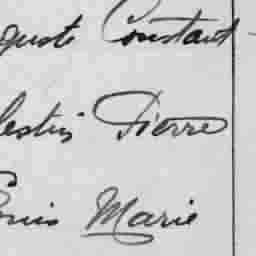 guste Constant
lestin Pierre
ouis Marie